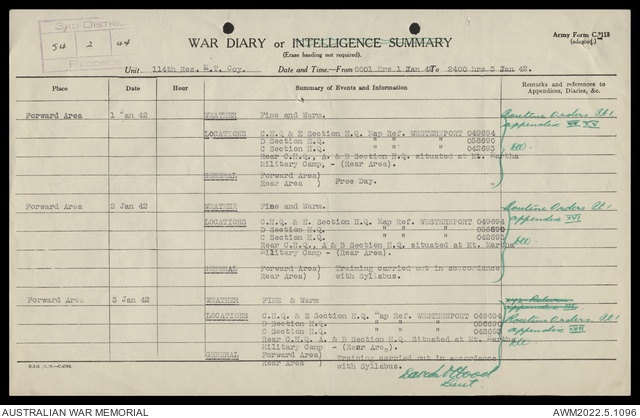 3RD DISTRICT
54 2 44
RECORDS
WAR DIARY or INTELLIGENCE SUMMARY
(Erase heading not required).
Army Form C.2118
(adapted).
Unit 114th Res. M.T. Coy. Date and Time—From 0001 Hrs 1 Jan 42 To 2400 hrs 3 Jan 42.
Place Date Hour Summary of Events and Information Remarks and references to Appendices, Diaries, &c.
Forward Area 1 "an 42 WEATHER Fine and Warm. Routine Orders
appendix XV
LOCATIONS C.H.Q & E Section H.Q. Map Ref. WESTERNPORT 049694
D Section H.Q. " " " 056690
C Section H.Q. " " " 042693
Rear C.H.Q., A. & B Section H.Q. situated at Mt. Martha
Military Camp, - (Rear Area).
GENERAL Forward Area)
Rear Area ) Free Day.
Forward Area 2 Jan 42 WEATHER Fine and Warm. Routine Orders
appendix XVI
LOCATIONS C.H.Q & E. Section H.Q. Map Ref WESTERNPORT 049694
D Section H.Q. " " " 056690
C Section H.Q. " " " 042693
Rear C.H.Q., A & B Section H.Q. situated at Mt. Martha
Military Camp - (Rear Area).
GENERAL Forward Area) Training carried out in accordance
Rear Area ) with Syllabus.
Forward Area 3 Jan 42 WEATHER FINE & Warm
LOCATIONS C.H.Q & E Section H.Q. "ap Ref. WESTERNPORT 049694
D Section H.Q. " " " 056690
C Section H.Q. " " " 042693
Routine Orders
appendix XVII
Rear C.H.Q. A & B Section H.Q. Situated at Mt. Martha
Military Camp - (Rear Area).
GENERAL Forward Area) Training carried out in accordance
Rear Area ) with Syllabus.
Lieut.
AUSTRALIAN WAR MEMORIAL
AWM2022.5.1096